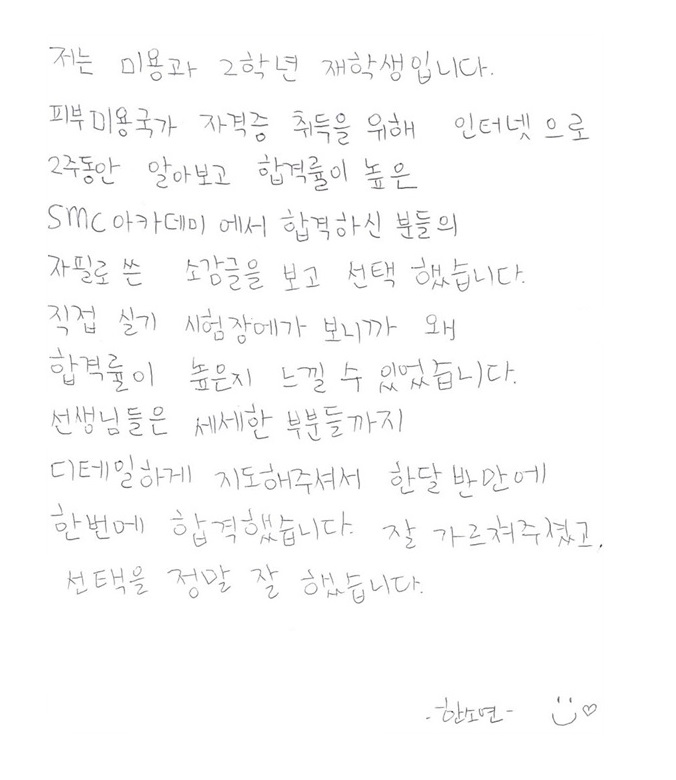 저는 미용과 2학년 재학생입니다.
피부미용국가 자격증 취득을 위해 인터넷으로
2주동안 알아보고 합격률이 높은
SMC아카데미에서 합격하신 분들의
자필로 쓴 소감글을 보고 선택 했습니다.
직접 실기 시험장에가 보니까 왜
합격률이 높은지 느낄 수 있었습니다.
선생님들은 세세한 부분들까지
디테일하게 지도해주셔서 한달 반만에
한번에 합격했습니다. 잘 가르쳐주셨고,
선택을 정말 잘 했습니다.
-한소연-